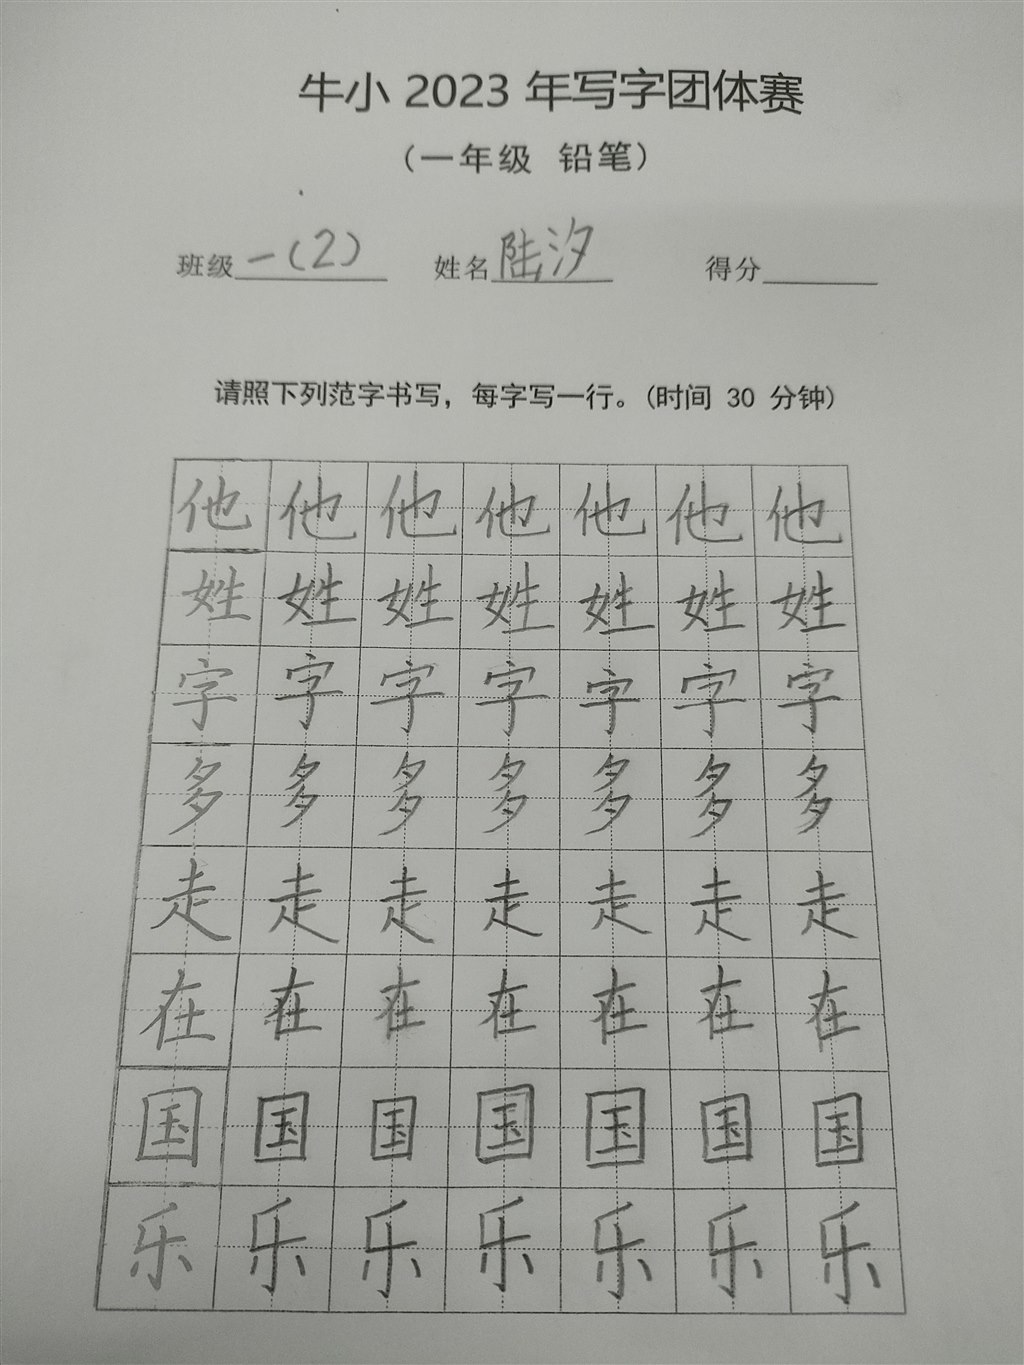 牛小 2023 年写字团体赛
（一年级 铅笔）
班级 一（2） 姓名 陆汐 得分
请照下列范字书写，每字写一行。(时间 30 分钟)
他 他 他 他 他 他 他
姓 姓 姓 姓 姓 姓 姓
字 字 字 字 字 字 字
多 多 多 多 多 多 多
走 走 走 走 走 走 走
在 在 在 在 在 在 在
国 国 国 国 国 国 国
乐 乐 乐 乐 乐 乐 乐